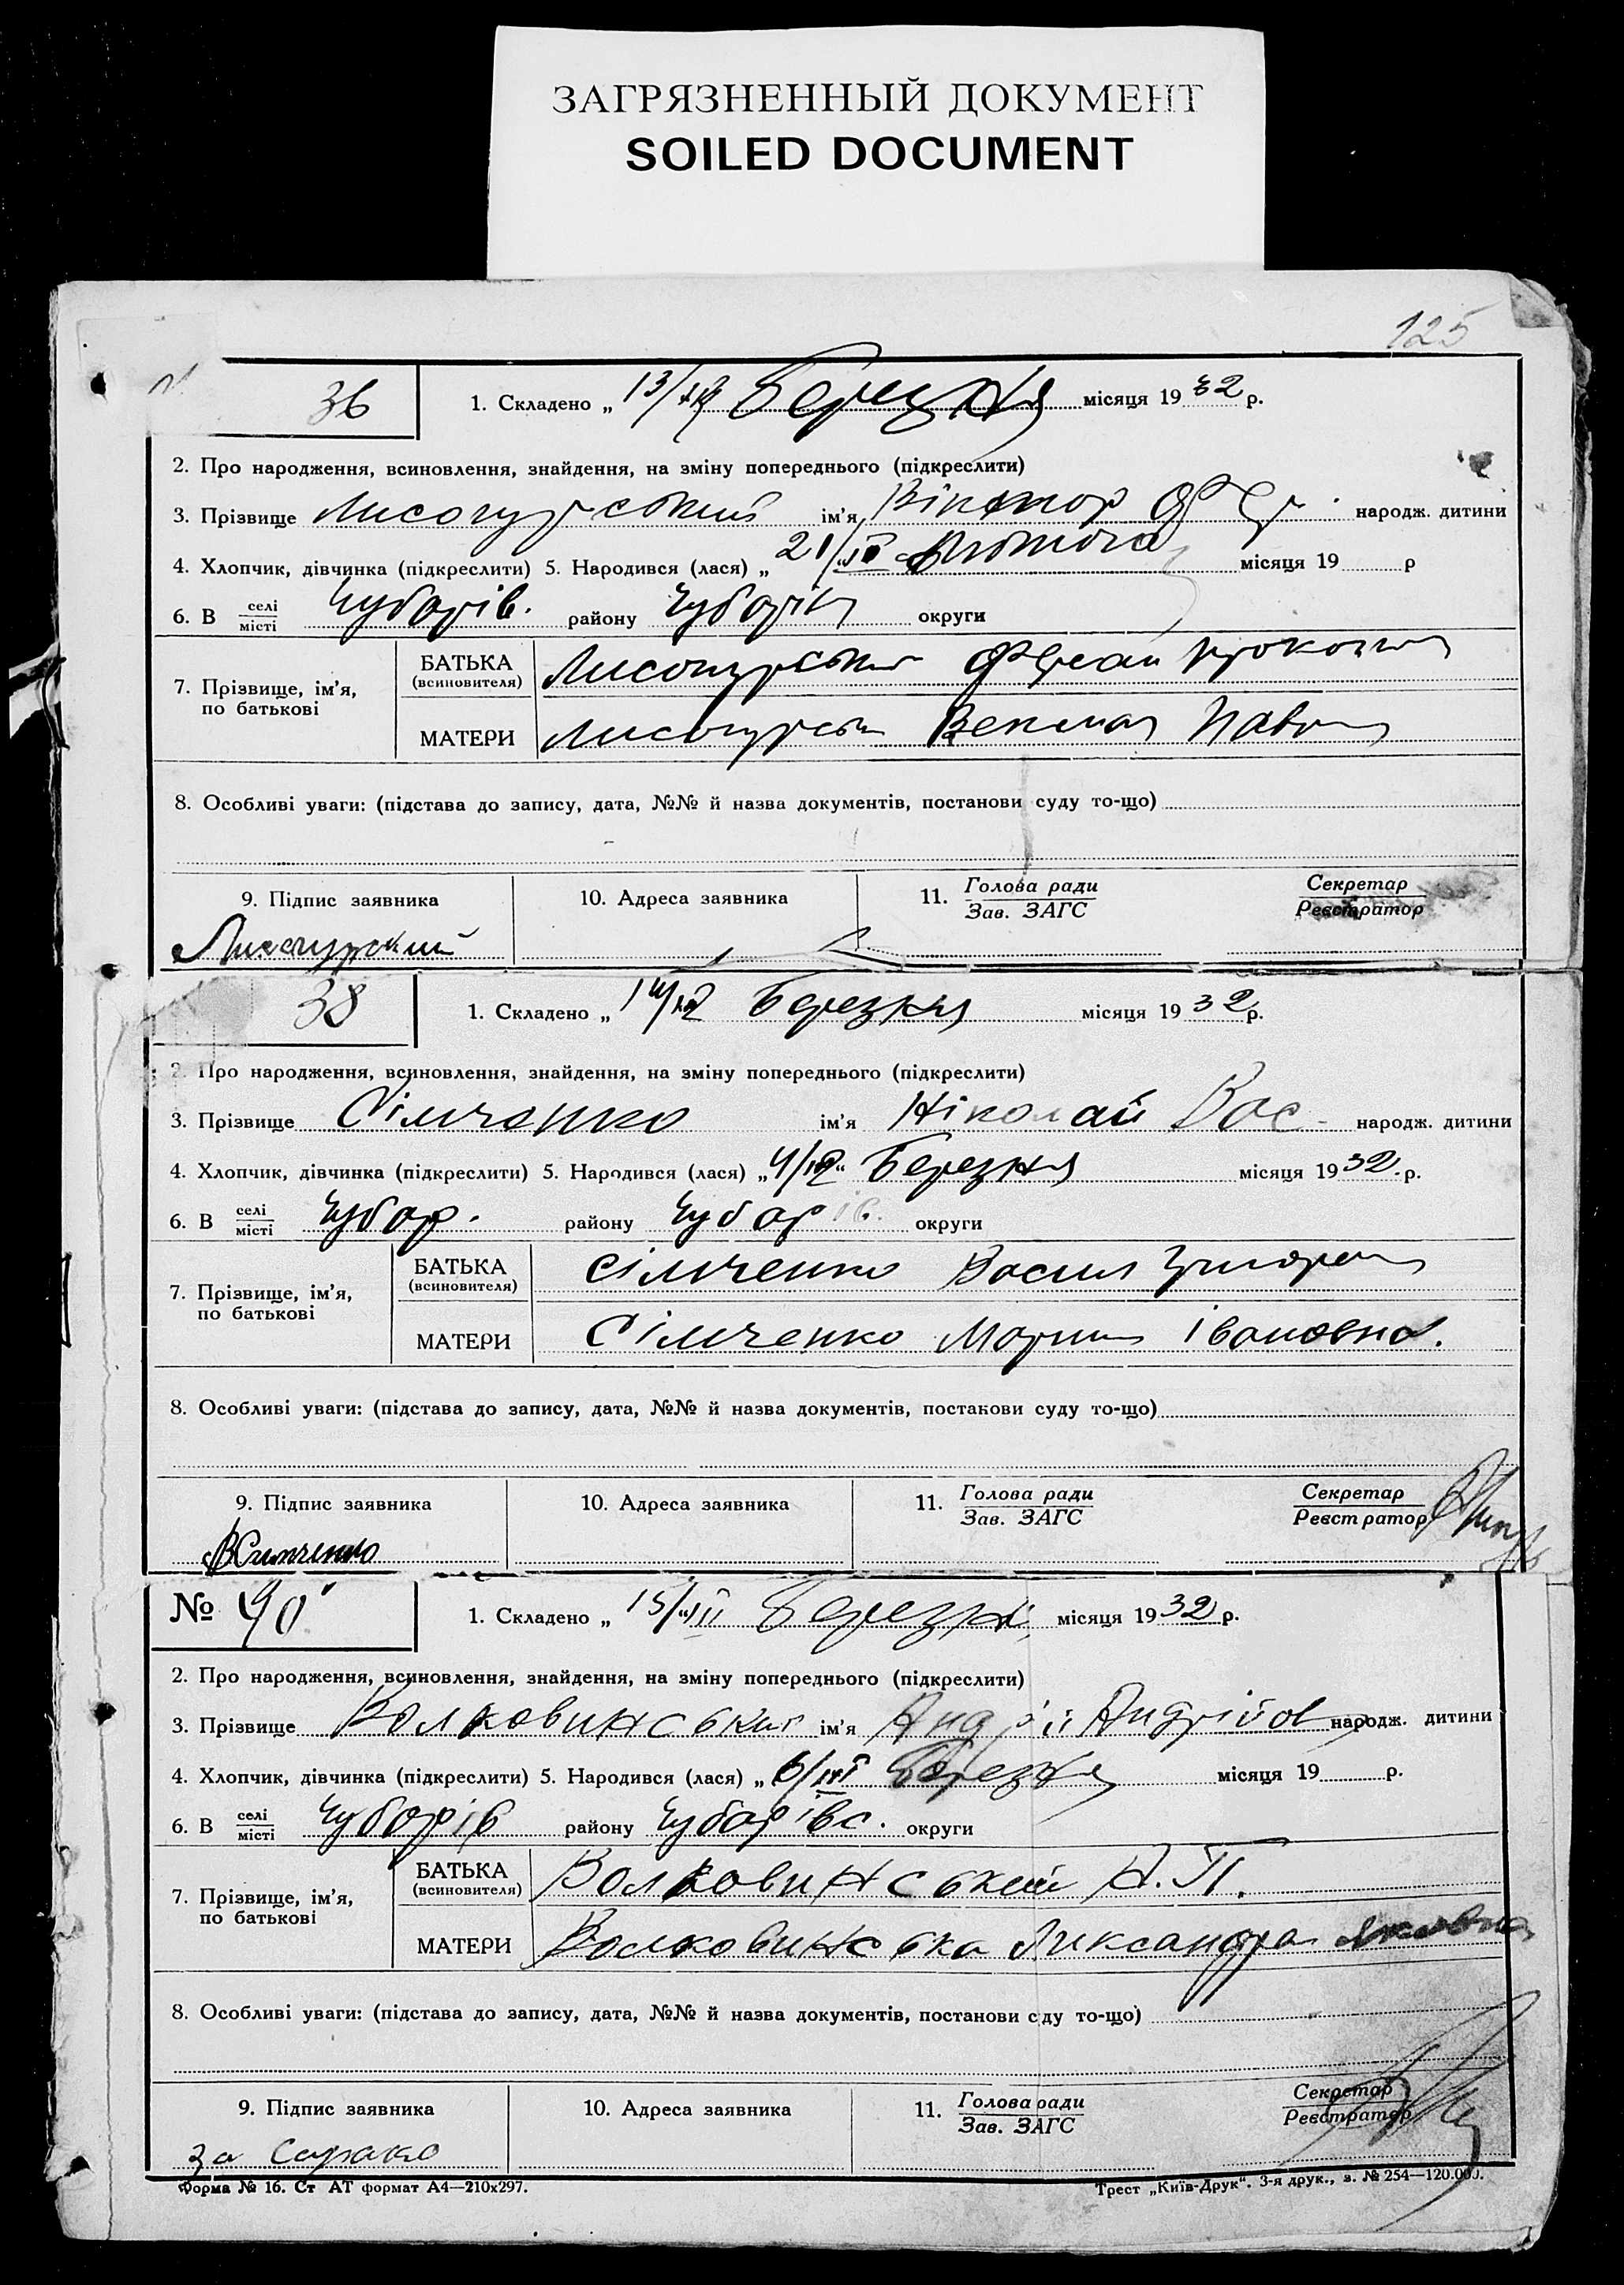 ЗАГРЯЗНЕННЫЙ ДОКУМЕНТ
SOILED DOCUMENT
125
36
1. Складено „ 13/III Березня місяця 1932 р.
2. Про народження, всиновлення, знайдення, на зміну попереднього (підкреслити)
3. Прізвище Лисогурський ім'я Віктор народж. дитини
4. Хлопчик, дівчинка (підкреслити) 5. Народився (лася) „ 21/II Лютого місяця 19 р
6. В селі/місті Чубарів. району Чубарів округи
7. Прізвище, ім'я, по батькові
БАТЬКА (всиновителя) Лисогурський
МАТЕРИ Лисогурськ
8. Особливі уваги: (підстава до запису, дата, №№ й назва документів, постанови суду то-що)
9. Підпис заявника 10. Адреса заявника 11. Голова ради/Зав. ЗАГС Секретар/Реєстратор
Лисогурский
38
1. Складено „ 14/III Березня місяця 1932 р.
2. Про народження, всиновлення, знайдення, на зміну попереднього (підкреслити)
3. Прізвище Сімченко ім'я Ніколай Вас. народж. дитини
4. Хлопчик, дівчинка (підкреслити) 5. Народився (лася) „4/III“ Березня місяця 1932. р.
6. В селі/місті Чубар. району Чубарів. округи
7. Прізвище, ім'я, по батькові
БАТЬКА (всиновителя) Сімченко Васил
МАТЕРИ Сімченко Івановна.
8. Особливі уваги: (підстава до запису, дата, №№ й назва документів, постанови суду то-що)
9. Підпис заявника 10. Адреса заявника 11. Голова ради/Зав. ЗАГС Секретар/Реєстратор
ВСимченко
№ 40
1. Складено „ 15/III Березня місяця 1932 р.
2. Про народження, всиновлення, знайдення, на зміну попереднього (підкреслити)
3. Прізвище Волковинський ім'я Андрій Андрійов народж. дитини
4. Хлопчик, дівчинка (підкреслити) 5. Народився (лася) „ 6/III Березня місяця 19 р.
6. В селі/місті Чубарів району Чубарівс. округи
7. Прізвище, ім'я, по батькові
БАТЬКА (всиновителя) Волковинський А. П.
МАТЕРИ Волковинська Ликсандра
8. Особливі уваги: (підстава до запису, дата, №№ й назва документів, постанови суду то-що)
9. Підпис заявника 10. Адреса заявника 11. Голова ради/Зав. ЗАГС Секретар/Реєстратор
за
Форма № 16. Ст АТ формат А4—210х297. Трест „Київ-Друк“. 3-я друк., з. № 254—120.000.